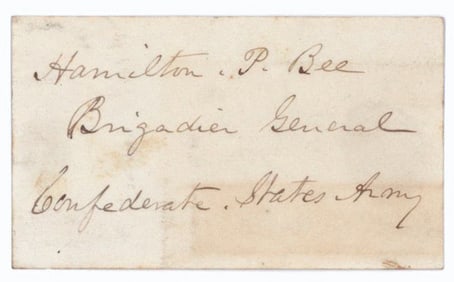 Hamilton. P. Bee
Brigadier General
Confederate. States Army